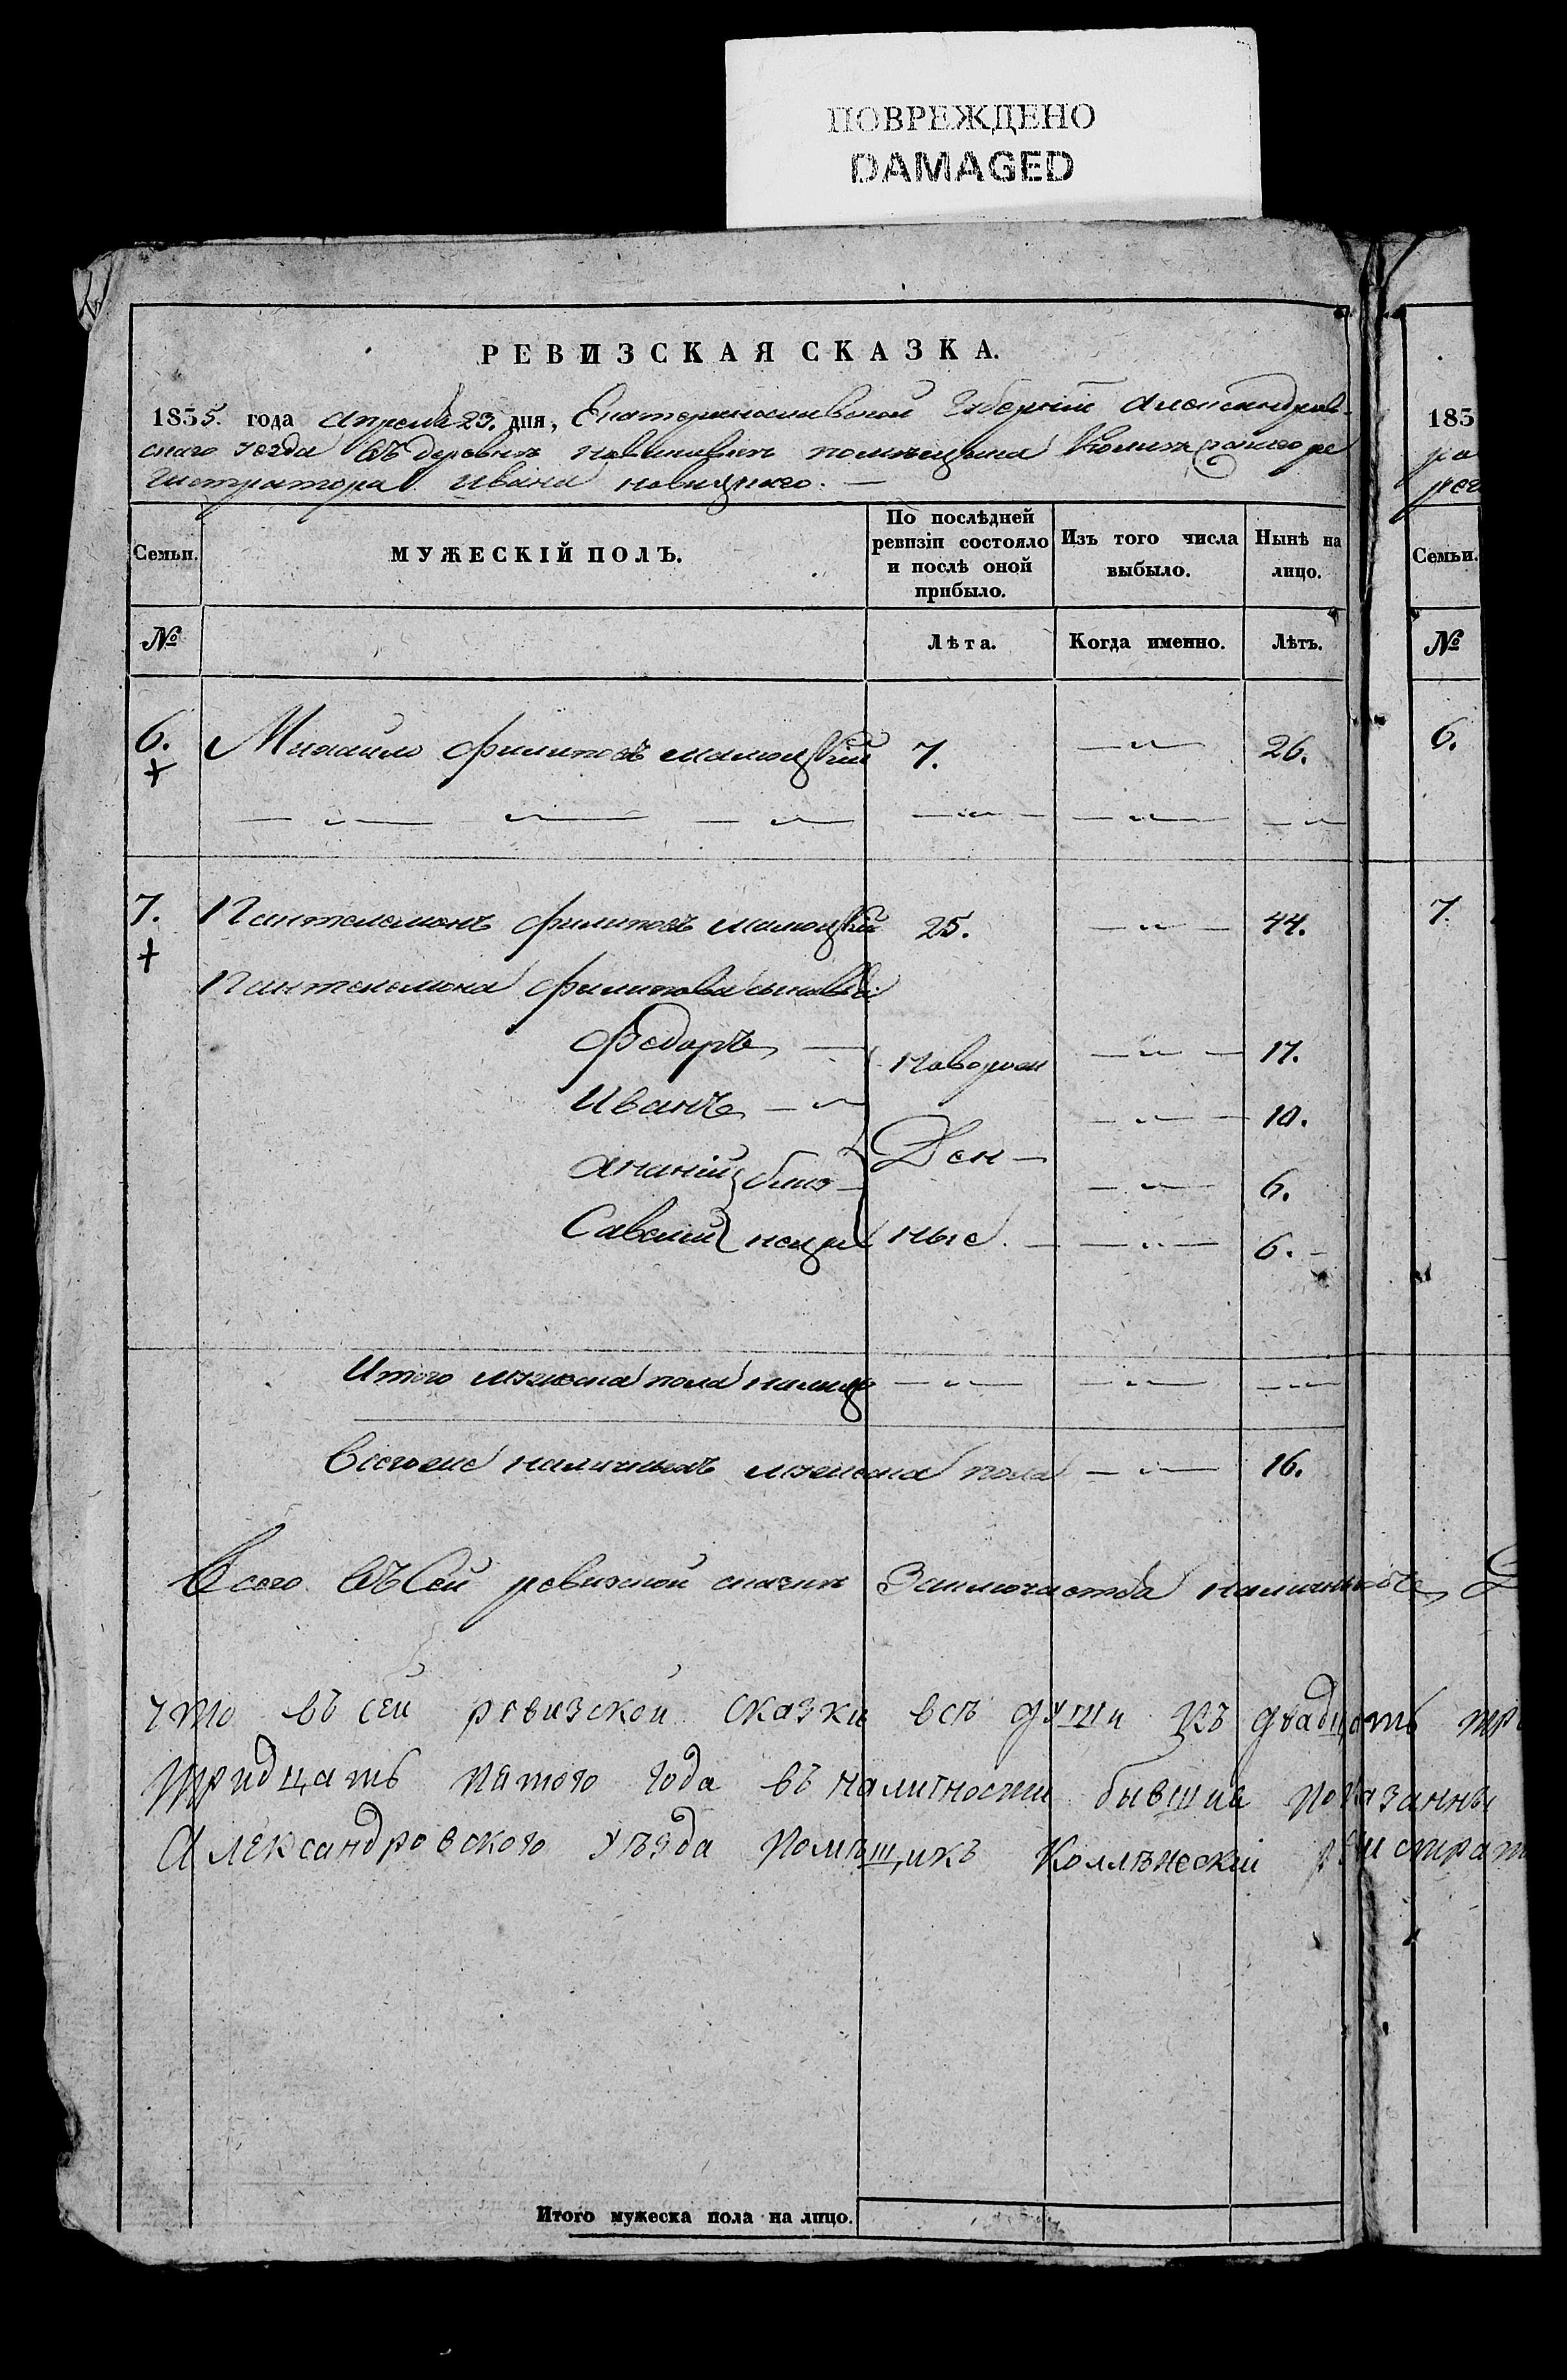 ПОВРЕЖДЕНО
DAMAGED
РЕВИЗСКАЯ СКАЗКА.
1835. года Апреля 23. дня, Екатеринославской Губерніи Александров-
скаго уезда въ деревни помещика Колежскаго ре
гистратора Ивана Новицкаго. —
183
Семьи.
МУЖЕСКІЙ ПОЛЪ.
По послѣдней ревизіи состояло и послѣ оной прибыло.
Изъ того числа выбыло.
Нынѣ на лицо.
Семьи.
№
Лѣта.
Когда именно.
Лѣтъ.
№
6. Михайло Филиповъ 7. — „ — 26. 6.
7. Пантелемонъ Филиповъ 25. — „ — 44. 7.
Пантелемона Филипова сыновья
Федоръ — Новорож — „ — 17.
Иванъ — „ — 10.
Ананій близ Ден — „ — 6.
Савелий нецы ные. — „ — 6.
Итого мужеска пола налицо — „ — — „ — — „ —
Всегоже наличныхъ мужеска пола — „ — 16.
Всего въ Сей ревизской сказке Заключается наличныхъ
что въ сей ревизской сказки всѣ души къ двадцать
тридцать пятого года въ наличности бывшие показанны
Александровского уѣзда помѣщикъ Коллѣжескій регистрат
Итого мужеска пола на лицо.